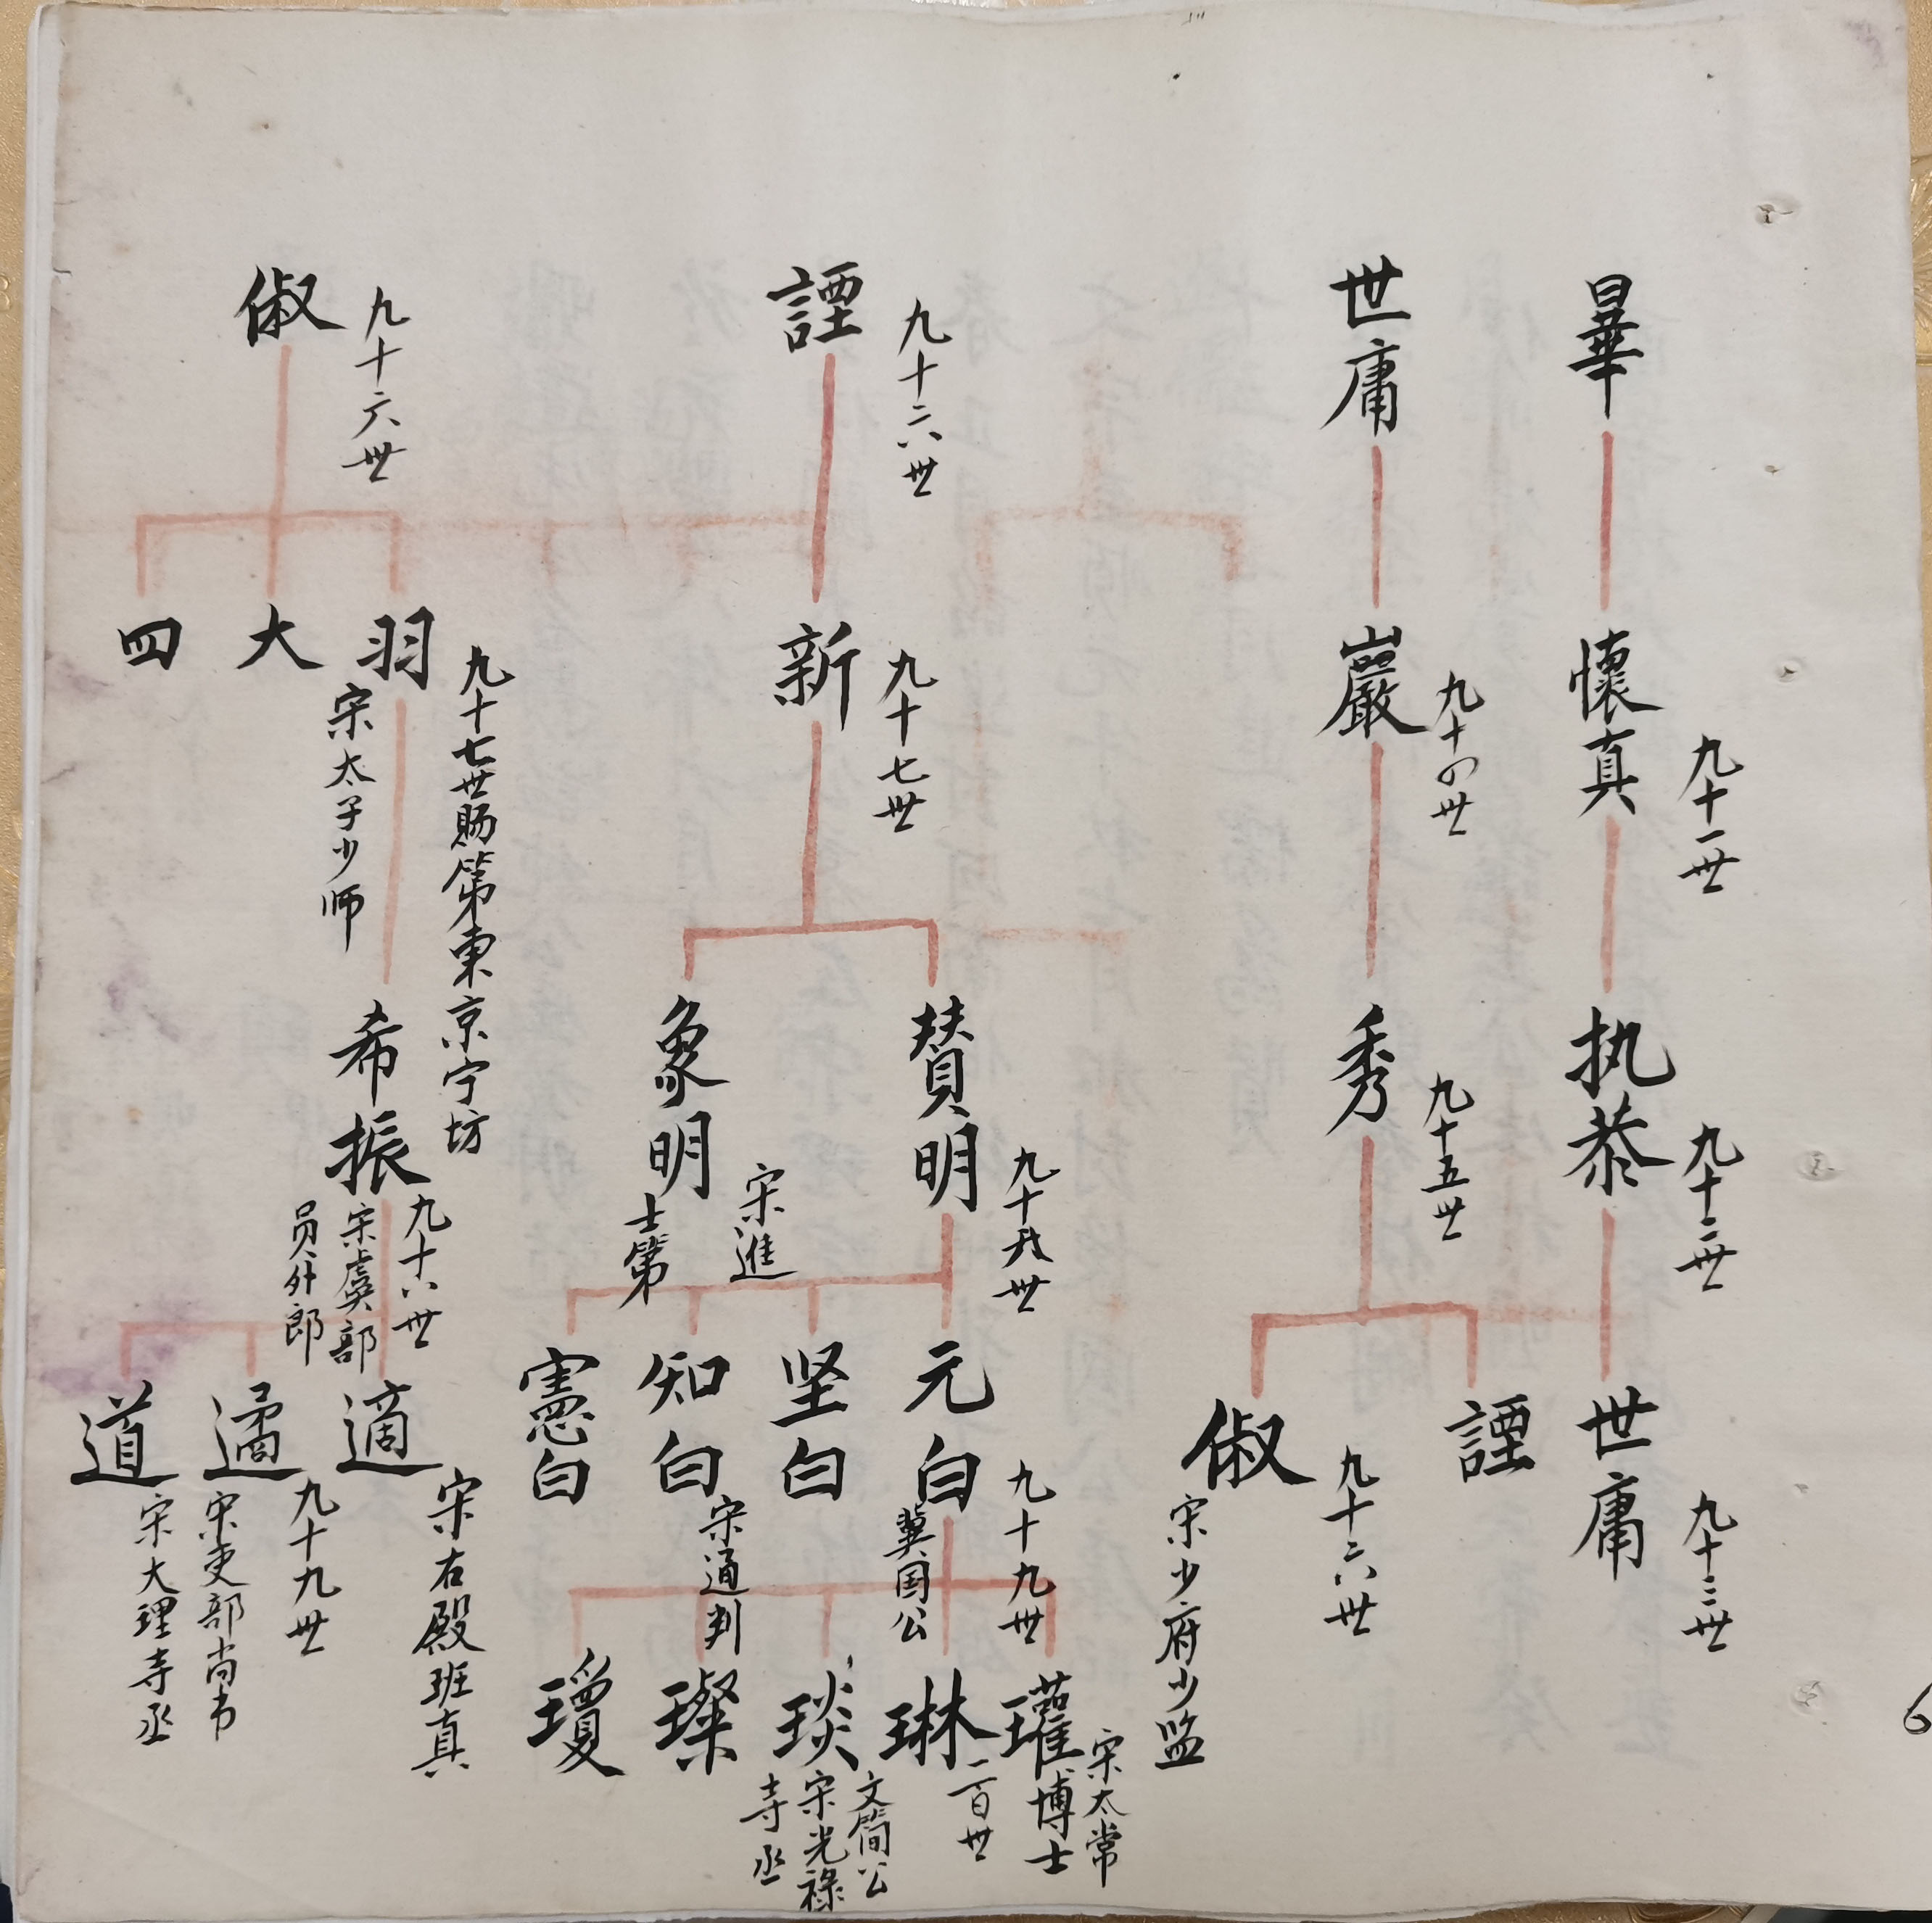 曅
懷真
九十一世
执恭
九十二世
世庸
九十三世
世庸
巖
九十四世
秀
九十五世
諲
俶
九十六世
宋少府少监
諲
九十六世
新
九十七世
赞明
九十八世
象明
宋進
士第
元白
九十九世
冀国公
坚白
知白
宋通判
憲白
瓘
宋太常
博士
琳
一百世
琰
文簡公
宋光禄
寺丞
璨
瓊
俶
九十六世
羽
九十七世赐第東京宁坊
宋太子少师
大
四
希振
九十八世
宋虞部
员外郎
適
宋右殿班真
遹
九十九世
宋吏部尚书
道
宋大理寺丞
6